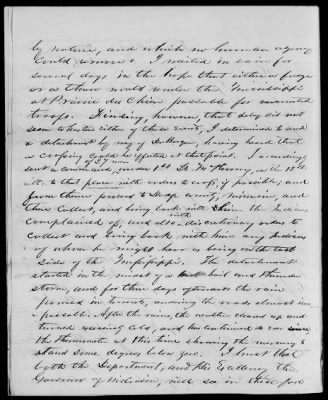 by nature, and which no human agency
could remove. I waited in vain for
several days in the hope that either a freeze
or a thaw would render the Mississippi
at Prairie du Chien passable for mounted
troops. Finding, however, that delay did not
seem to hasten either of these events, I determined to send
a detachment by way of Dubuque, having heard that
a crossing could be effected at that point. I accordingly
of 57 men
sent a command, under 1st Lt. McKinney, on the 18th
ult. to that place with orders to cross, if possible, and
from thence proceed to County, Wisconsin, and
then collect and bring back with him the Indians
with
complained of, and also discretionary orders to
collect and bring back with him any Indians
of whom he might hear as being on the east
side of the Mississippi. The detachment
started in the midst of a hail and thunder
storm, and for three days afterwards the rain
poured in torrents, making the roads almost im-
passable. After the rain, the weather cleared up and
turned freezing cold, and has continued so ever since
the thermometer at this time showing the mercury to
stand some degrees below zero. I trust that
both the Department, and His Excellency the
Governor of Wisconsin, will see in these fac